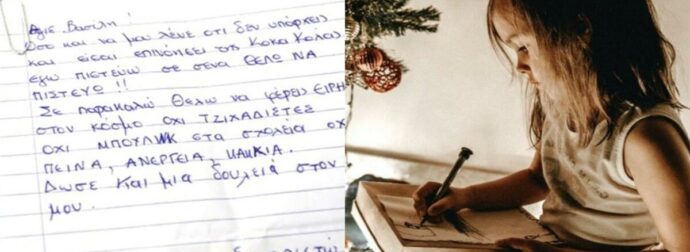 Άγιε Βασίλη!
Όσο και να μου λένε οτι δεν υπάρχεις
και είσαι επινόηση της Κοκα Κολας
εγω πιστευω σε σενα ΘΕΛΩ ΝΑ
ΠΙΣΤΕΥΩ!!
Σε παρακαλώ θελω να φέρεις ΕΙΡΗ
στον κόσμο ΟΧΙ ΤΖΙΧΑΔΙΣΤΕΣ
ΟΧΙ ΜΠΟΥΛΙΝΚ στα σχολεία ΟΧ
ΠΕΙΝΑ, ΑΝΕΡΓΕΙΑ, ΚΑΚΙΑ.
Δωσε και μια δουλειά στον
μου.